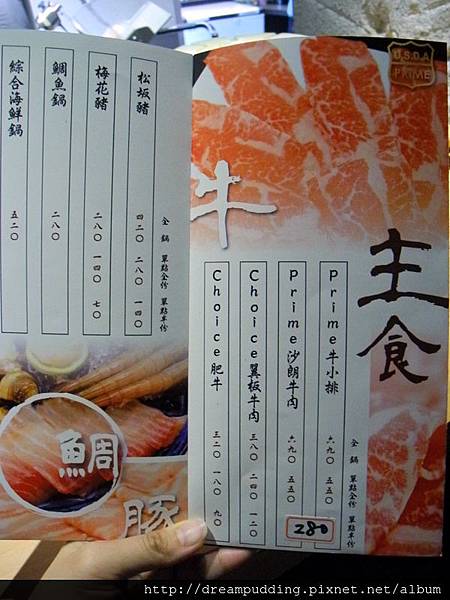 U.S.D.A
PRIME
主食
牛
全鍋 單點全份 單點半份
Prime牛小排 六九〇 五五〇
Prime沙朗牛肉 六九〇 五五〇
Choice翼板牛肉 三八〇 二四〇 一二〇
Choice肥牛 三二〇 一八〇 九〇
280
全鍋 單點全份 單點半份
松坂豬 四二〇 二八〇 一四〇
梅花豬 二八〇 一四〇 七〇
鯛魚鍋 二八〇
綜合海鮮鍋 五二〇
鯛
豚
http://dreampudding.pixnet.net/album